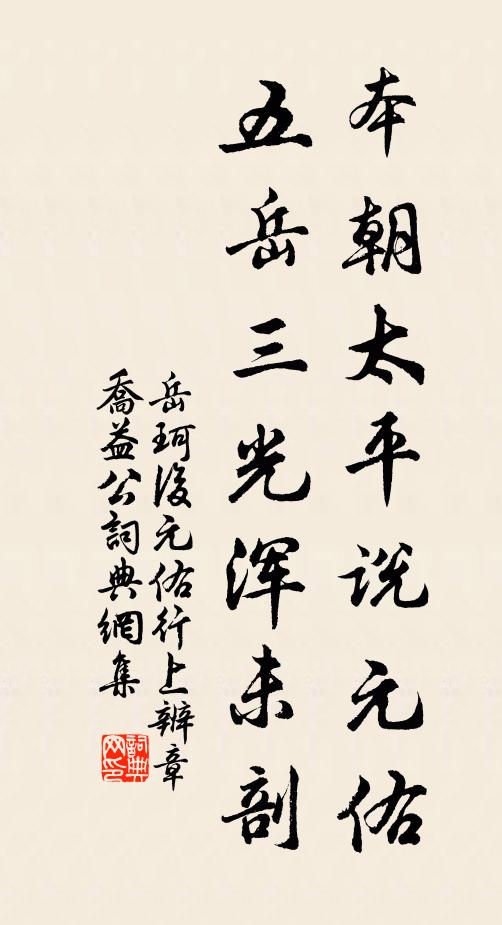 本朝太平说元佑
五岳三光浑未剖
岳珂後元佑行上辨章
喬益公詞典網集
詞典网印